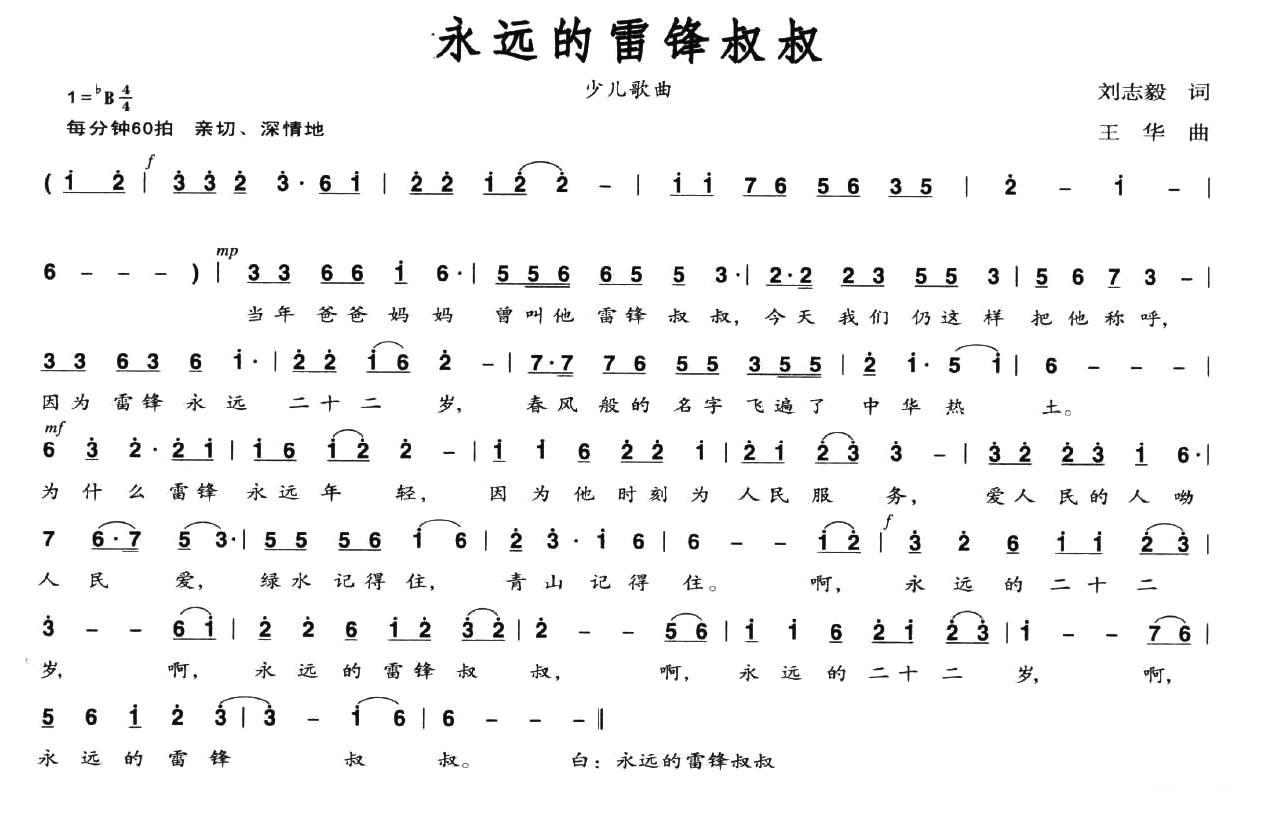 永远的雷锋叔叔
少儿歌曲
1=♭B 4/4
刘志毅 词
每分钟60拍 亲切、深情地
王 华 曲
f
( i̇ 2̇ | 3̇ 3̇ 2̇ 3̇· 6 i̇ | 2̇ 2̇ i̇ 2̇ 2̇ – | i̇ i̇ 7 6 5 6 3 5 | 2̇ – i̇ – |
mp
6 – – – ) | 3 3 6 6 i̇ 6· | 5 5 6 6 5 5 3· | 2·2 2 3 5 5 3 | 5 6 7 3 – |
当年 爸爸 妈 妈 曾叫他 雷锋 叔 叔, 今天 我们 仍这 样 把 他 称 呼,
3 3 6 3 6 i̇· | 2̇ 2̇ i̇ 6 2̇ – | 7·7 7 6 5 5 3 5 5 | 2̇ i̇· 5 i̇ | 6 – – – |
因为 雷锋 永 远 二十 二 岁, 春风 般的 名字 飞遍了 中 华 热 土。
mf
6 3̇ 2̇· 2̇ i̇ | i̇ 6 i̇ 2̇ 2̇ – | i̇ i̇ 6 2̇ 2̇ i̇ | 2̇ i̇ 2̇ 3̇ 3̇ – | 3̇ 2̇ 2̇ 3̇ i̇ 6· |
为 什 么 雷锋 永远 年 轻, 因 为 他 时刻 为 人民 服 务, 爱人 民的 人 呦
f
7 6·7 5 3· | 5 5 5 6 i̇ 6 | 2̇ 3̇· i̇ 6 | 6 – – i̇ 2̇ | 3̇ 2̇ 6 i̇ i̇ 2̇ 3̇ |
人 民 爱, 绿水 记得 住, 青 山 记 得 住。 啊, 永 远 的 二十 二
3̇ – – 6 i̇ | 2̇ 2̇ 6 i̇ 2̇ 3̇ 2̇ | 2̇ – – 5 6 | i̇ i̇ 6 2̇ i̇ 2̇ 3̇ | i̇ – – 7 6 |
岁, 啊, 永 远 的 雷锋 叔 叔, 啊, 永 远 的 二十 二 岁, 啊,
5 6 i̇ 2̇ 3̇ | 3̇ – i̇ 6 | 6 – – – ‖
永 远 的 雷 锋 叔 叔。 白：永远的雷锋叔叔